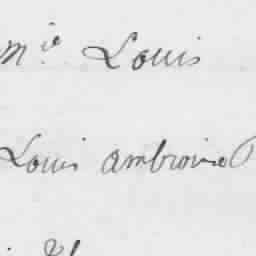 Mie Louis
Louis ambroise